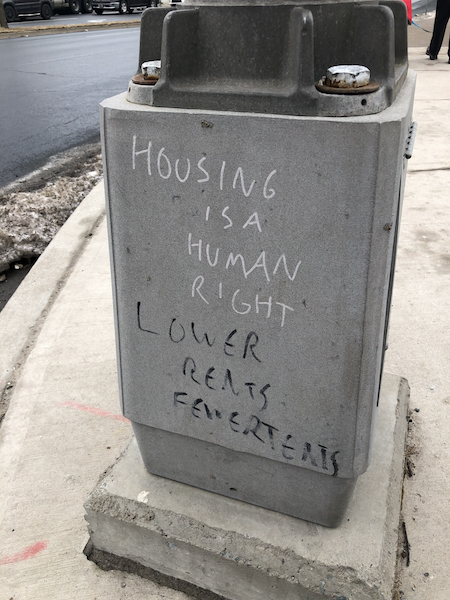 HOUSING
IS A
HUMAN
RIGHT
LOWER
RENTS
FEWER TENTS